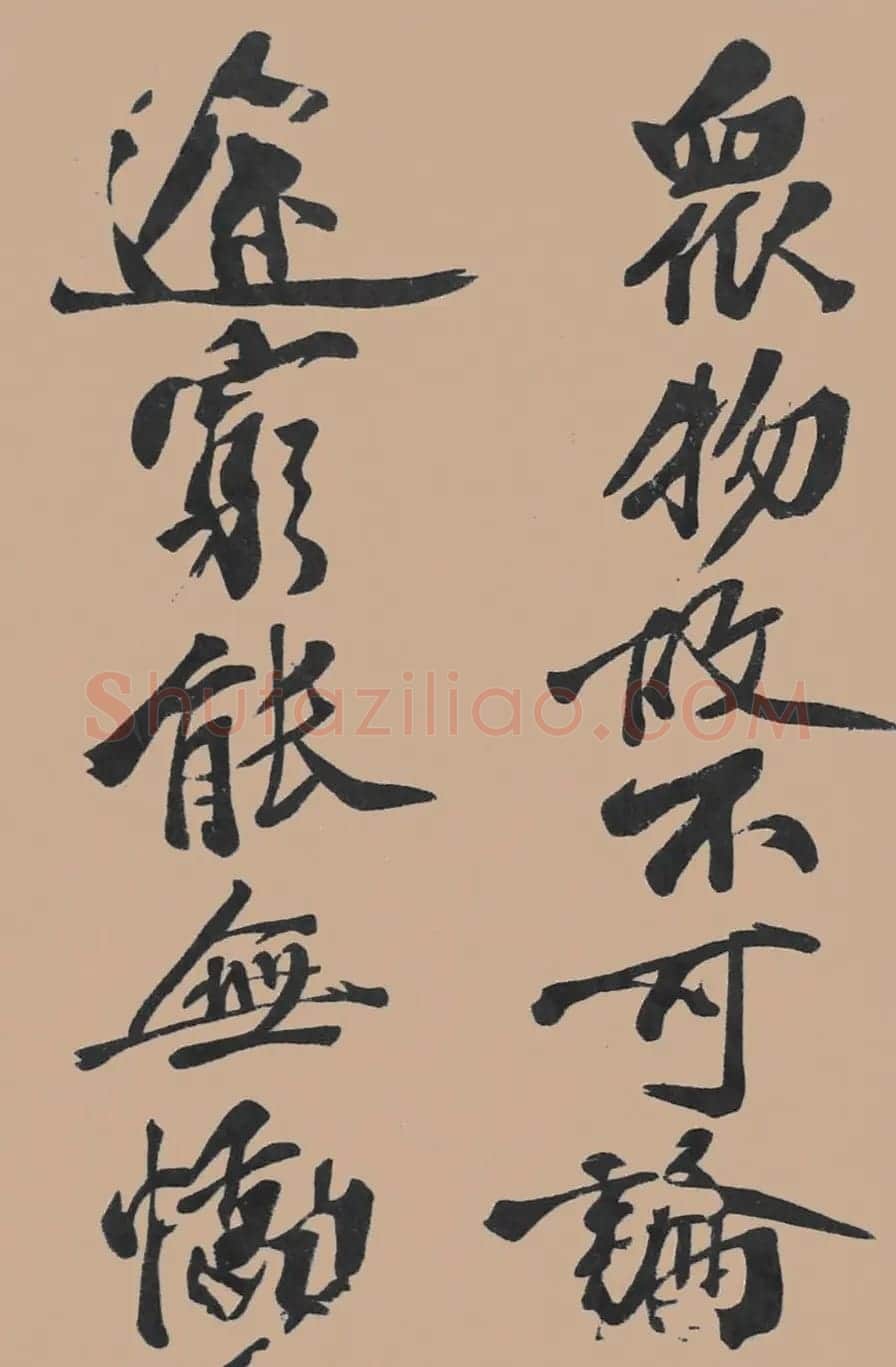 眾物故不可論
途窮能無慟
Shufaziliao.COM